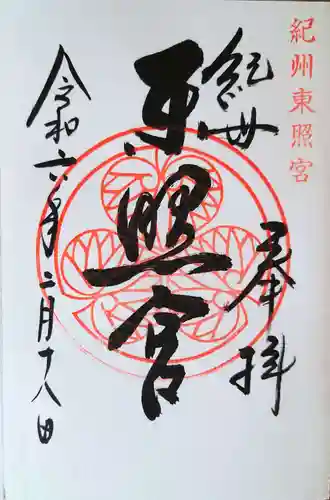 紀州東照宮
奉拝
東照宮
令和六年二月十八日